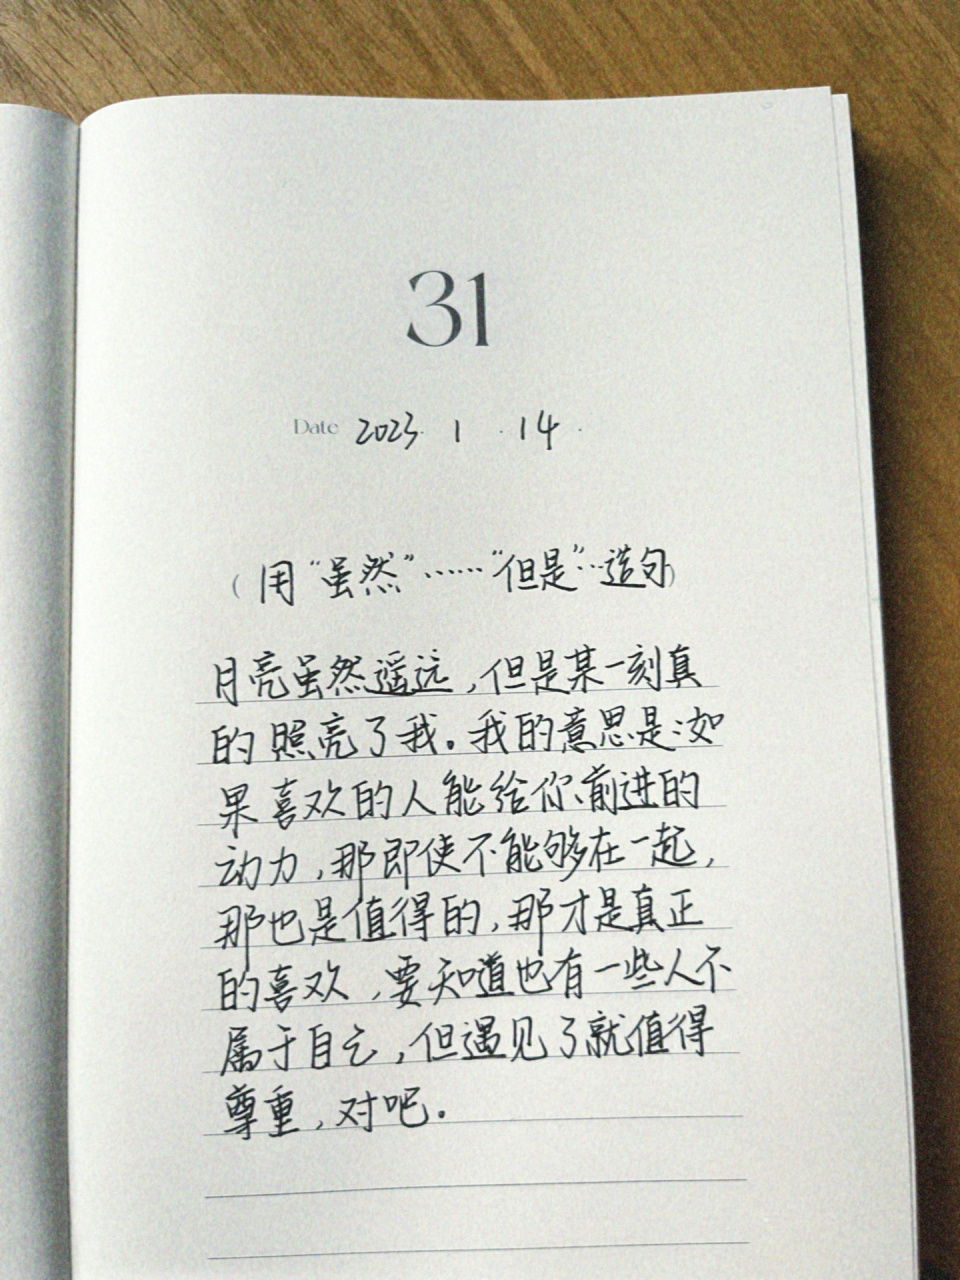 31
Date 2023. 1 . 14 .
(用“虽然”……“但是”…造句)
月亮虽然遥远,但是某一刻真
的照亮了我。我的意思是:如
果喜欢的人能给你前进的
动力,那即使不能够在一起,
那也是值得的,那才是真正
的喜欢,要知道也有一些人不
属于自己,但遇见了就值得
尊重,对吧.